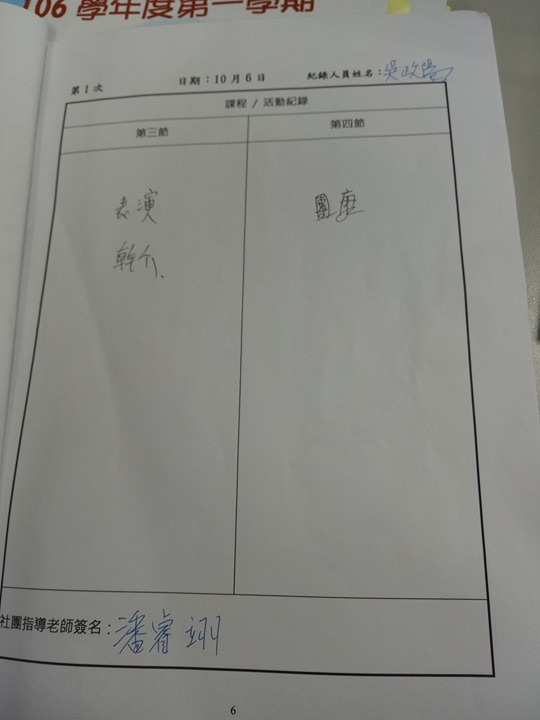 106 學年度第一學期
第 1 次 日期：10 月 6 日 紀錄人員姓名：吳政
課程 / 活動紀錄
第三節 第四節
表演 團康
幹介、
社團指導老師簽名：潘睿翊
6